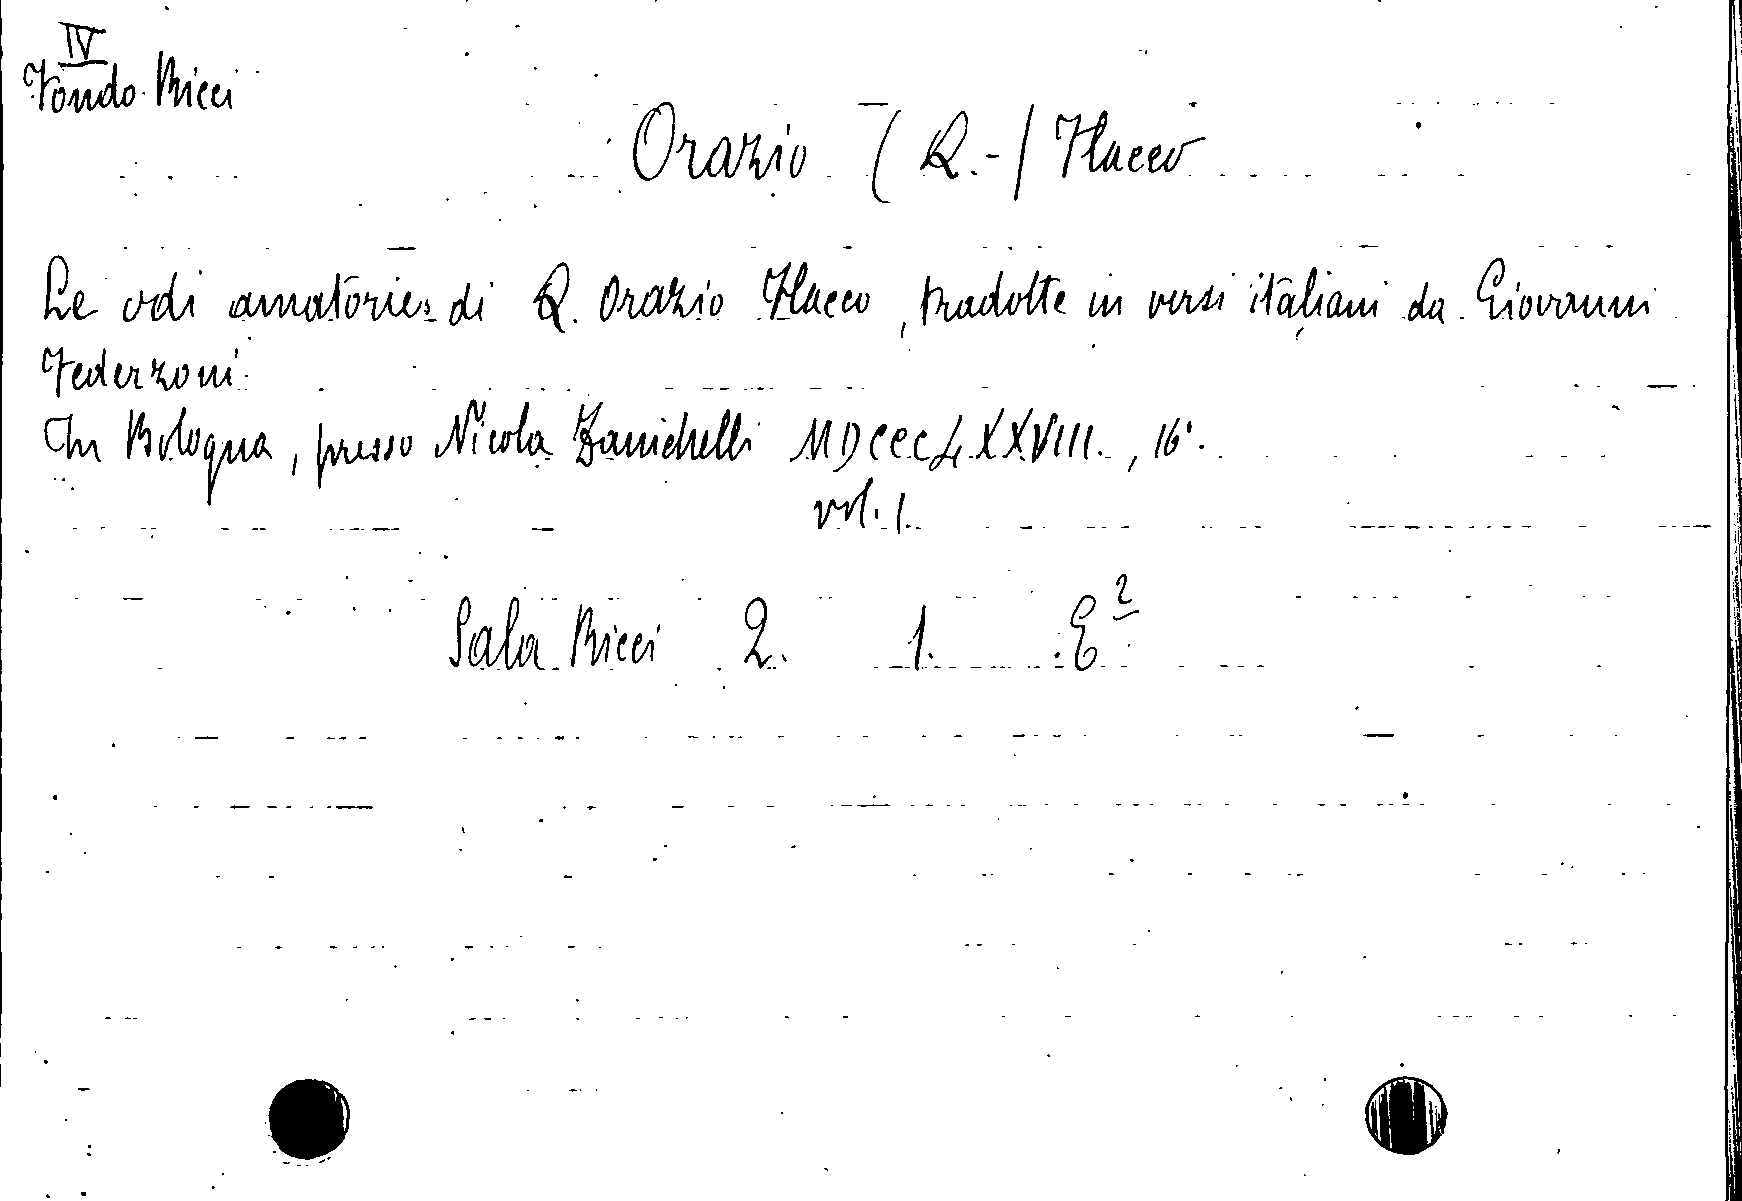 IV
Fondo Ricci
Orazio (Q.-) Flacco
Le odi amatorie di Q. Orazio Flacco, tradotte in versi italiani da Giovanni
Federzoni.
In Bologna, presso Nicola Zanichelli MDCCCLXXVIII., 16°.
vol. 1.
Sala Ricci 2. 1. E²